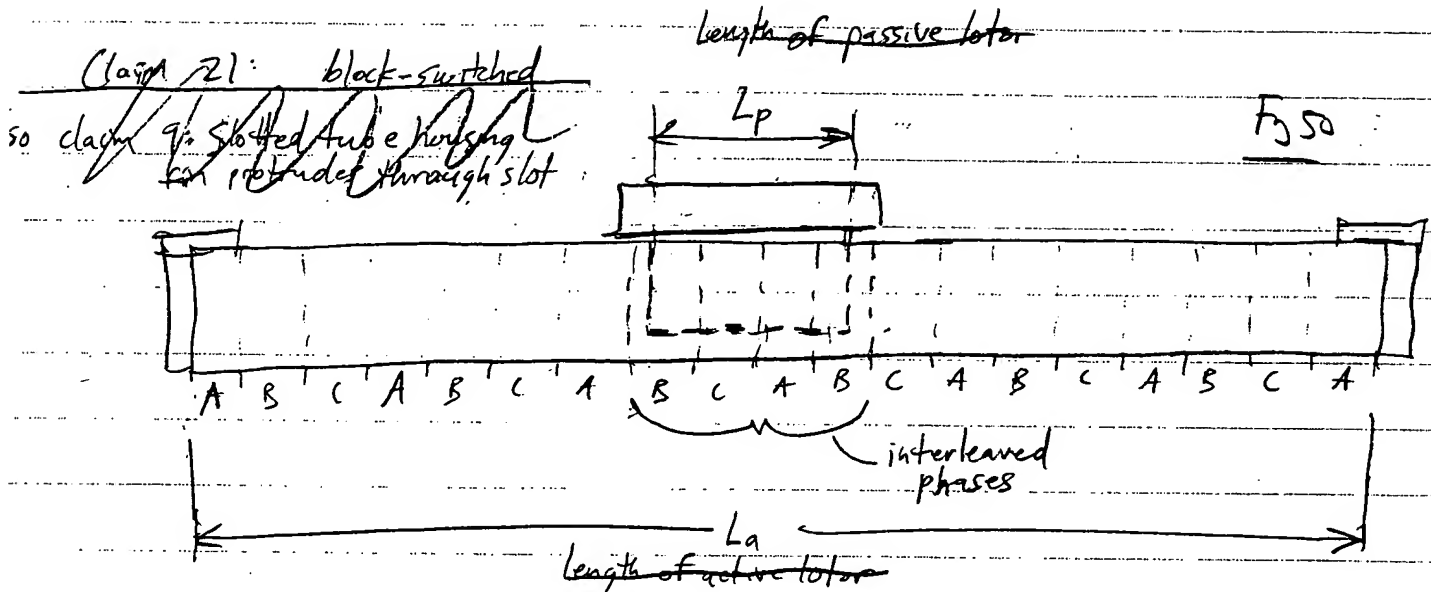 Length of passive lotor
Claim 21: block-switched
so claim 9: slotted tube housing
fin protrudes through slot
Lp
Fig 50
A B C A B C A B C A B C A B C A B C A
interleaved
phases
La
Length of active lotor